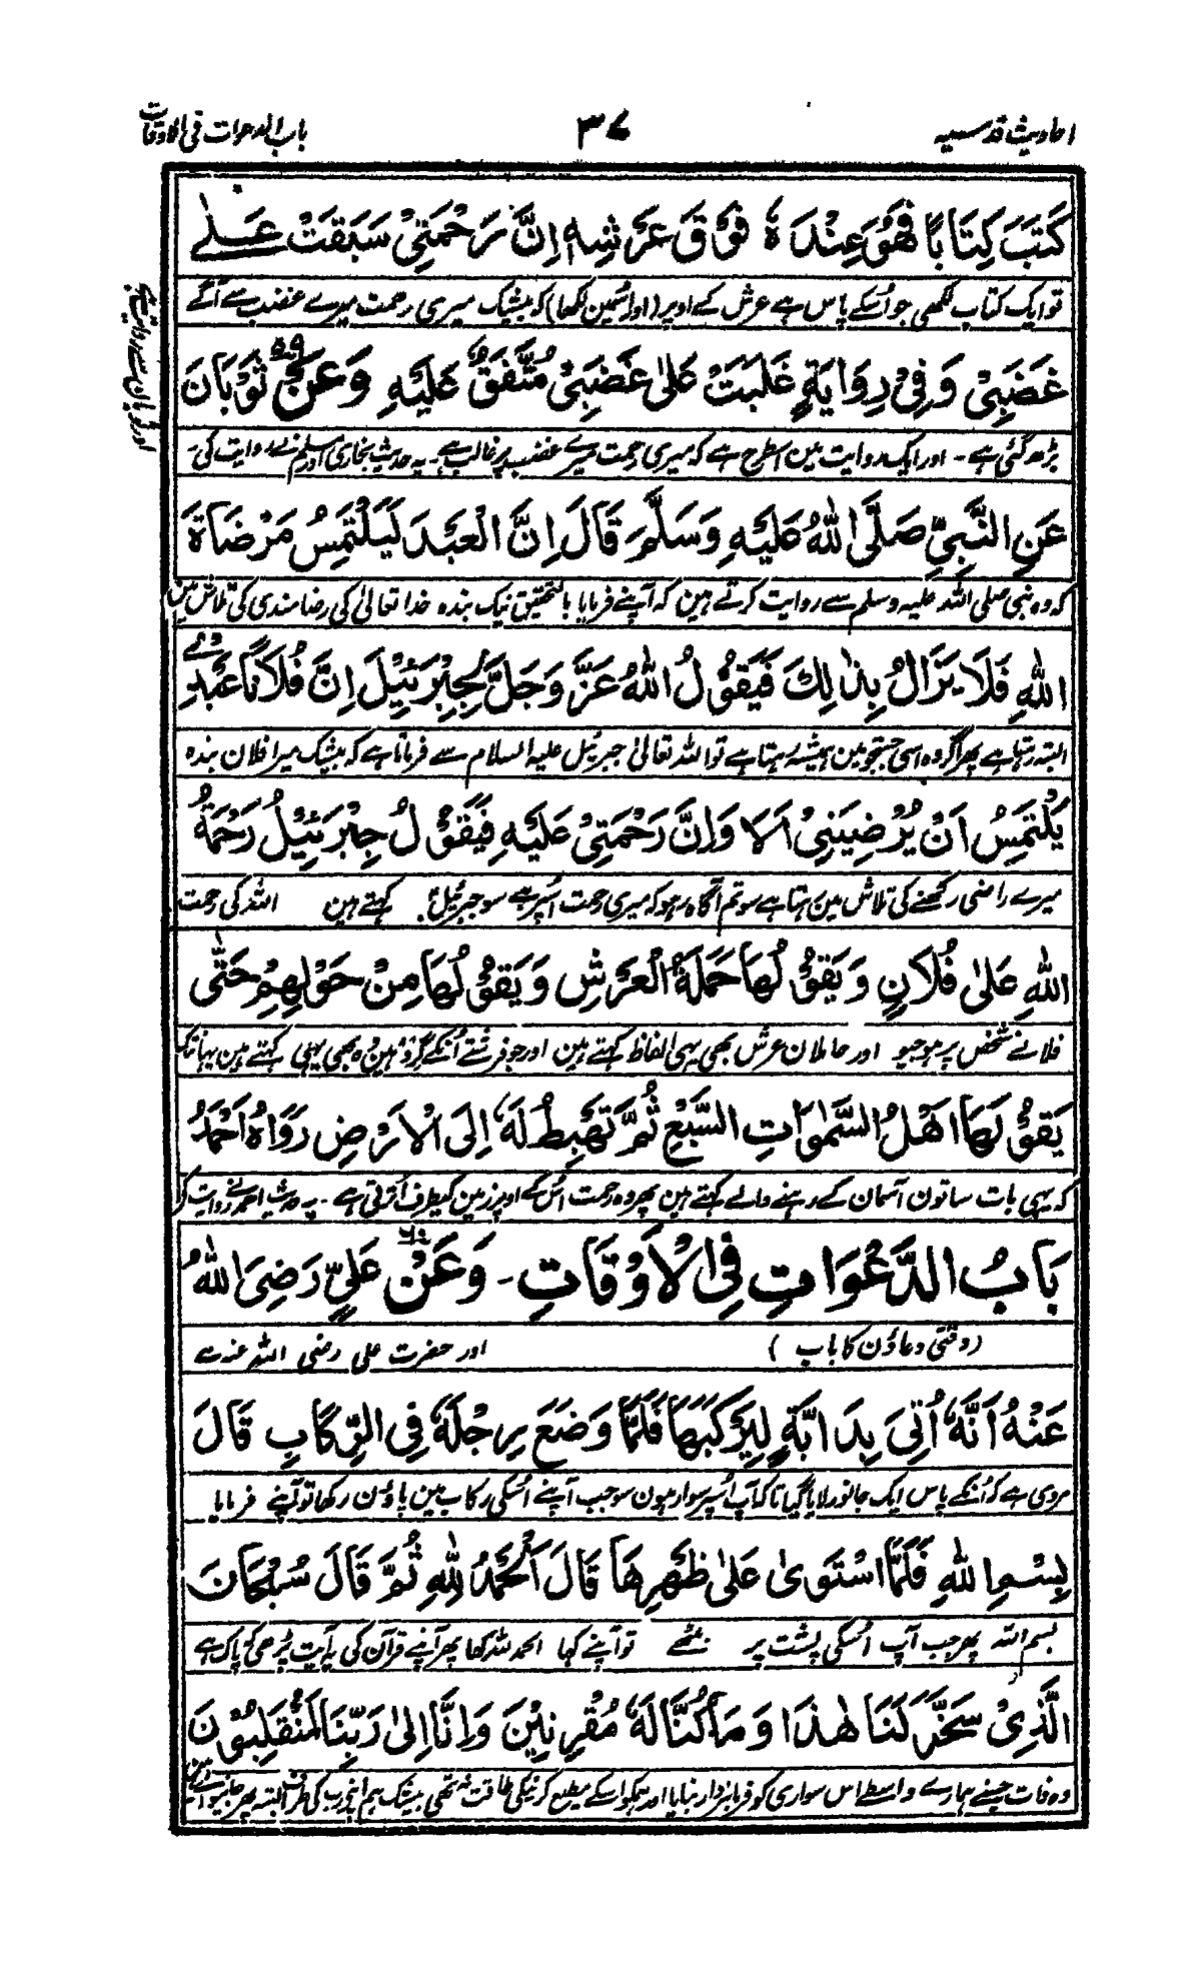 احادیث قدسیہ ۳۷ باب الدعوات فی الاوقات
كَتَبَ كِتَابًا فَهُوَ عِنْدَهٗ فَوْقَ عَرْشِهٖ اِنَّ رَحْمَتِیْ سَبَقَتْ عَلٰے
تو ایک کتاب لکھی جو اُسکے پاس ہے عرش کے اوپر (اور اُسمین لکھا) کہ بیشک میری رحمت میرے غضب سے آگے
غَضَبِیْ وَفِیْ رِوَايَةٍ غَلَبَتْ عَلٰی غَضَبِیْ مُتَّفَقٌ عَلَيْهِ وَعَنْ ۵۹ ثَوْبَانَ
بڑھ گئی ہے ۔ اور ایک روایت مین اسطرح ہے کہ میری رحمت میرے غضب پر غالب ہے ۔ یہ حدیث بخاری اور مسلم نے روایت کی ۔
اور ثوبان سے روایت ہے
عَنِ النَّبِیِّ صَلَّی اللّٰهُ عَلَيْهِ وَسَلَّمَ قَالَ اِنَّ الْعَبْدَ لَيَلْتَمِسُ مَرْضَاةَ
کہ وہ نبی صلی اللہ علیہ وسلم سے روایت کرتے ہین کہ آپنے فرمایا بالتحقیق نیک بندہ خدا تعالیٰ کی رضامندی کی تلاش مین
اللّٰهِ فَلَا يَزَالُ بِذٰلِكَ فَيَقُوْلُ اللّٰهُ عَزَّ وَجَلَّ لِجِبْرَئِيْلَ اِنَّ فُلَانًا عَبْدِیْ
البتہ رہتا ہے پھر اگر وہ اسی جستجو مین ہمیشہ رہتا ہے تو اللہ تعالیٰ جبرئیل علیہ السلام سے فرماتا ہے کہ بیشک میرا فلان بندہ
يَلْتَمِسُ اَنْ يُرْضِيَنِیْ اَلَا وَاِنَّ رَحْمَتِیْ عَلَيْهِ فَيَقُوْلُ جِبْرَئِيْلُ رَحْمَةُ
میرے راضی رکھنے کی تلاش مین رہتا ہے سو تم آگاہ رہو کہ میری رحمت اُسپر ہے سو جبرئیل کہتے ہین اللہ کی رحمت
اللّٰهِ عَلٰی فُلَانٍ وَيَقُوْلُهَا حَمَلَةُ الْعَرْشِ وَيَقُوْلُهَا مَنْ حَوْلَهُمْ حَتّٰی
فلانے شخص پر ہوجیو اور حاملان عرش بھی یہی الفاظ کہتے ہین اور جو فرشتے اُنکے گرد ہین وہ بھی یہی کہتے ہین یہانتک
يَقُوْلَهَا اَهْلُ السَّمٰوَاتِ السَّبْعِ ثُمَّ تَهْبِطُ لَهٗ اِلَی الْاَرْضِ رَوَاهُ اَحْمَدُ
کہ یہی بات ساتون آسمان کے رہنے والے کہتے ہین پھر وہ رحمت اُس کے اوپر زمین کیطرف اُترتی ہے ۔ یہ حدیث احمد نے روایت کی
بَابُ الدَّعَوَاتِ فِی الْاَوْقَاتِ ۔ وَعَنْ ۶۰ عَلِیٍّ رَضِیَ اللّٰهُ
(وقتی دعاؤن کا باب) اور حضرت علی رضی اللہ عنہ سے
عَنْهُ اَنَّهٗ اُتِیَ بِدَابَّةٍ لِيَرْكَبَهَا فَلَمَّا وَضَعَ رِجْلَهٗ فِی الرِّكَابِ قَالَ
مروی ہے کہ اُنکے پاس ایک جانور لایا گیا تاکہ آپ اُسپر سوار ہون سو جب آپنے اُسکی رکاب مین پاؤن رکھا تو آپنے فرمایا
بِسْمِ اللّٰهِ فَلَمَّا اسْتَوٰی عَلٰی ظَهْرِهَا قَالَ اَلْحَمْدُ لِلّٰهِ ثُمَّ قَالَ سُبْحَانَ
بسم اللہ پھر جب آپ اُسکی پشت پر بیٹھے تو آپنے کہا الحمد للہ کہا پھر آپنے قرآن کی یہ آیت پڑھی کہ پاک ہے
الَّذِیْ سَخَّرَ لَنَا هٰذَا وَمَا كُنَّا لَهٗ مُقْرِنِيْنَ وَاِنَّا اِلٰی رَبِّنَا لَمُنْقَلِبُوْنَ
وہ ذات جسنے ہمارے واسطے اس سواری کو فرمانبردار بنایا اور ہمکو اسکے مطیع کرنیکی طاقت نہ تھی بیشک ہم اپنے رب کی طرف البتہ پھر جانیوالے ہین